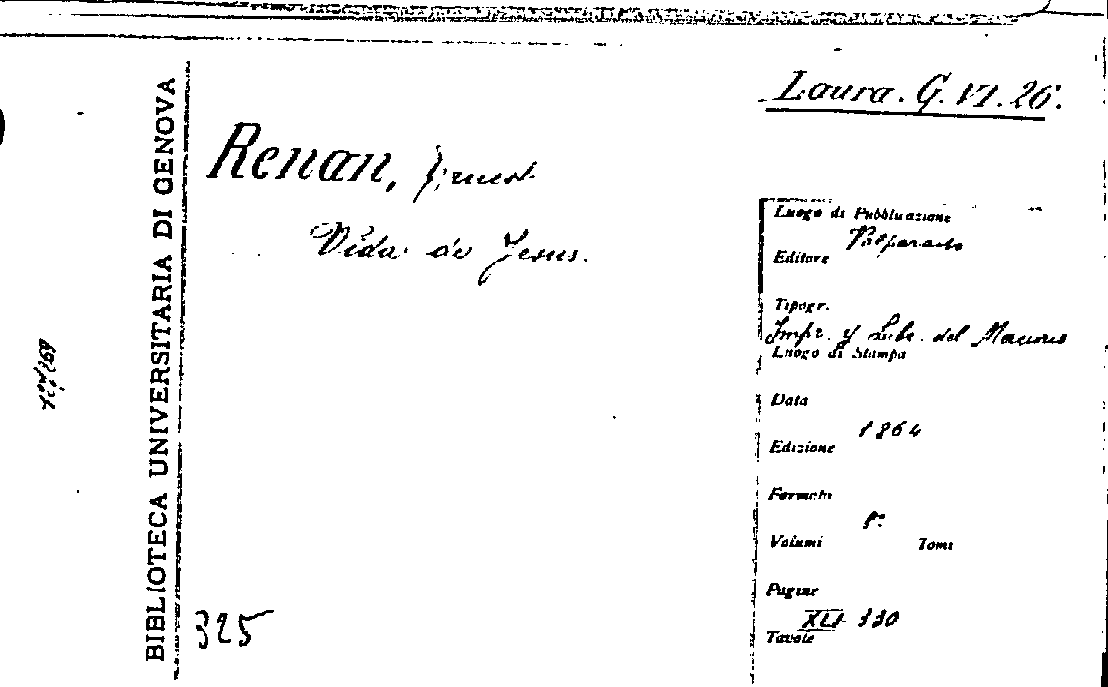 Laura. G. VI. 26.
BIBLIOTECA UNIVERSITARIA DI GENOVA
Renan, Ernest
Vida de Jesus.
Luogo di Pubblicazione
Valparaiso
Editore
Tipogr.
Impr. y Libr. del Mercurio
Luogo di Stampa
Data
1864
Edizione
Formato
8°
Volumi Tomi
Pagine
XLI 330
Tavole
325